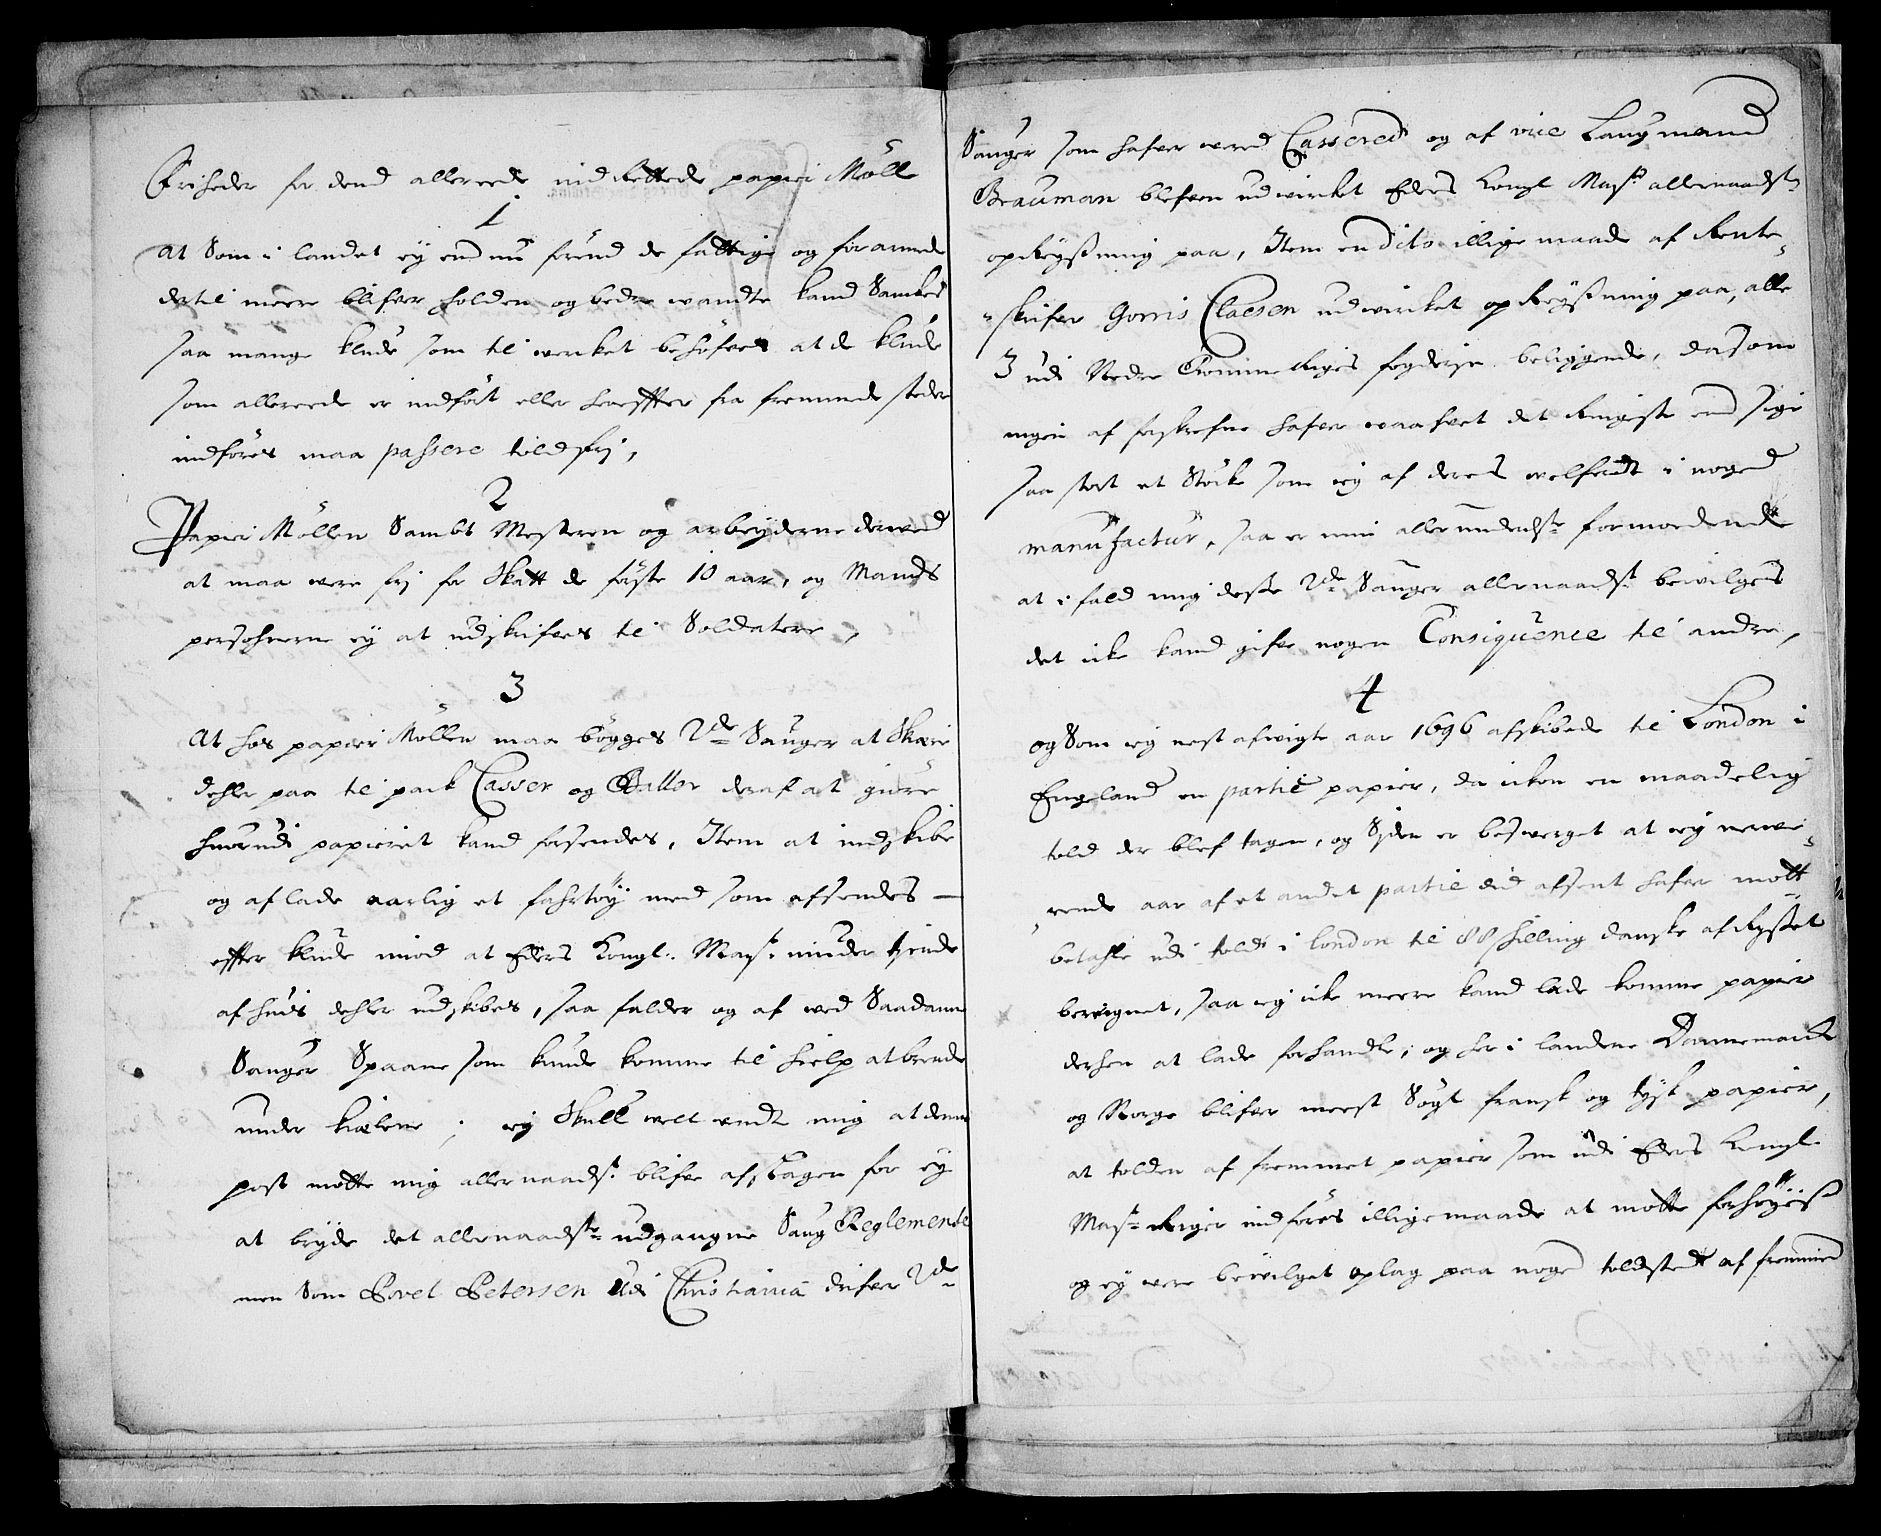 Friheder for dend allereede indrettede papir Mölle
1
At Som i landet ey endnu förend de fattige og forarmede
dertil meere blifver holden og bedre wandte kand Samles
saa mange klude som til verket behöfves at de klude
som allereede er indfört eller herefter fra fremmede steder
indföres maa passere toldfrj,
2
Papir Möllen Sambt Mesteren og arbeyderne derved
at maa vere frj for Skatt de förste 10 aar, og Mands
persohnerne ey at udskrifves til Soldatere,
3
At hos papir Möllen maa bögges 2de Sauger at Skiere
dehler paa til pack Casser og Baller deraf at giöre
hvorudi papiret kand forsendes, Item at indskibe
og aflade aarlig et fahrtöy med som afsendes
effter klude imod at Eders Kongl: Mayt: nyder tjende
af huis dehler udskibes, saa falder og af ved Saadanne
Sauger Spaane som kunde komme til hielp at brende
under kielene; ey Skull vell undt mig at denne
post motte mig allernaadst blifve afslagen for ey
at bryde det allernaadste udgangne Saug Reglemente
men Som Povel Petersen udi Christiania drifver 2de
Sauger som hafver vered Casseret og af vice Laugmand
Brauman blefven udvirket Eders Kongl Mayts allernaadst
opreysning paa, Item en dito illigemaade af Rente-
skrifver Gorris Claesen udvircket opreysning paa, alle
3 udi Nedre Rommeriges fogderje beliggende, dasom
ingen af forskrefne hafver vaafvet det Ringeste end sige
saa stort et Stöcke som jeg af deres velferdt i noged
manufactur, saa er min allerunderdste formoedende
at i fald mig disse 2de Sauger allernaadst bevilges
det icke kand gifve nogen Consiquence til andre,
4
og Som jeg nest afvigte aar 1696 afskibede til London i
Engeland en partie papier, da icken en maadelig
told der blef tagen, og Siden er besverget at jeg nerve-
rende aar af et andet partie did afsent hafver mött
betahle udi told i London til 88 skilling danske af Rysset
beregnet, saa jeg icke meere kand lade komme papier
derhen at lade forhandle; og her i landene Dannemarck
og Norge blifver meest Sögt fransk og tysk papier,
at tolden af fremmet papier som udi Eders Kongl
Mayts Riger indföres illigemaade at motte forhöyes
og ey vere bevilget oplag paa noged toldsted af fremmed